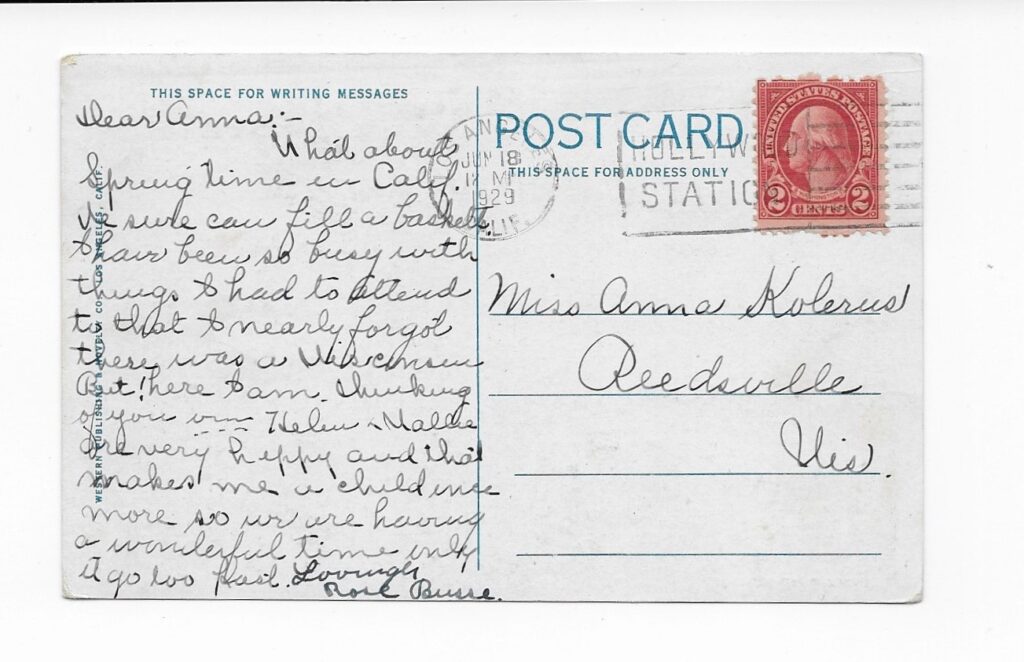 THIS SPACE FOR WRITING MESSAGES
Dear Anna:-
What about
Spring time in Calif.
I sure can fill a baskett
I have been so busy with
things I had to attend
to that I nearly forgot
there was a Wisconsin
But! here I am. thinking
of you
Helen & Mallie
are very happy and that
makes me a child once
more so we are having
a wonderful time only
it go too fast. Lovingly
Rose Busse.
WESTERN PUBLISHING & NOVELTY CO., LOS ANGELES, CALIF.
LOS ANGELES
JUN 18
12 M
1929
CALIF.
POST CARD
THIS SPACE FOR ADDRESS ONLY
HOLLYWOOD
STATION
UNITED STATES POSTAGE
WASHINGTON
2 CENTS 2
Miss Anna Kolerus
Reedsville
Wis.